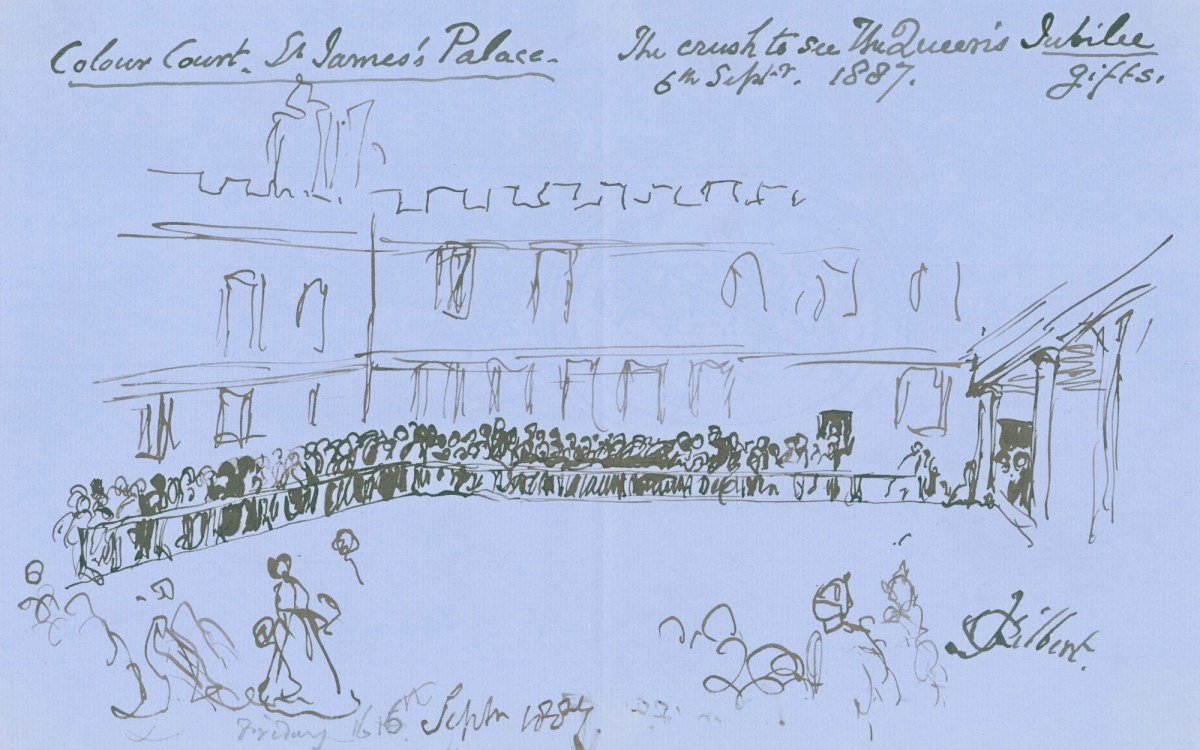 Colour Court. St James's Palace.
The crush to see The Queen's Jubilee
6th Septr. 1887. gifts.
Gilbert.
Friday 16 6th Septr 1887